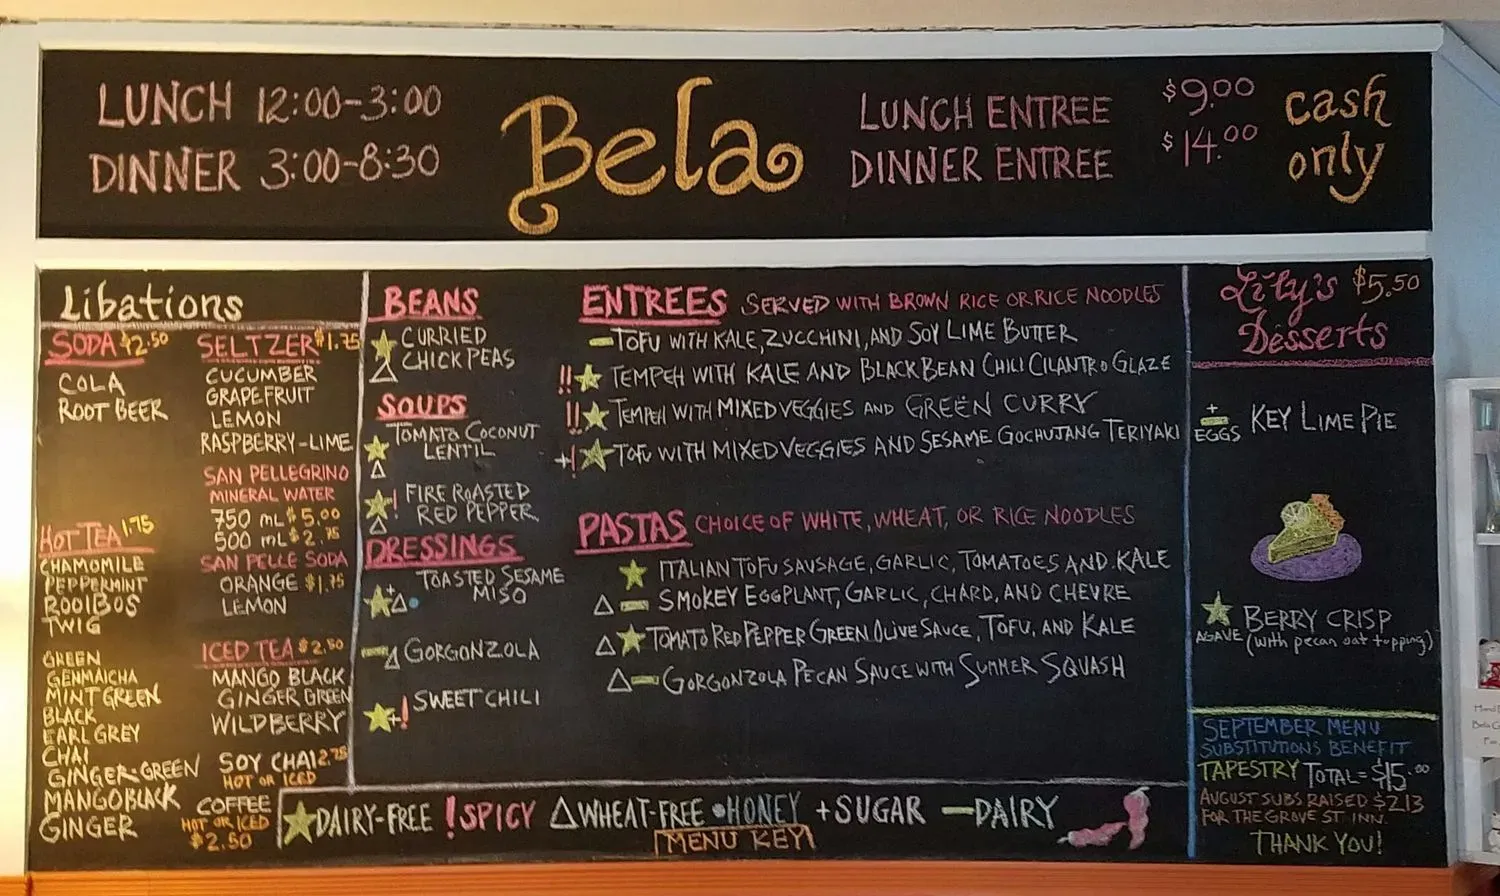 LUNCH 12:00-3:00
DINNER 3:00-8:30
Bela
LUNCH ENTREE $9.00
DINNER ENTREE $14.00
cash
only
Libations
SODA $2.50
COLA
ROOT BEER
HOT TEA 1.75
CHAMOMILE
PEPPERMINT
ROOIBOS
TWIG
GREEN
GENMAICHA
MINT GREEN
BLACK
EARL GREY
CHAI
GINGER GREEN
MANGO BLACK
GINGER
SELTZER $1.75
CUCUMBER
GRAPEFRUIT
LEMON
RASPBERRY-LIME
SAN PELLEGRINO
MINERAL WATER
750 mL $5.00
500 mL $2.75
SAN PELLE SODA
ORANGE $1.75
LEMON
ICED TEA $2.50
MANGO BLACK
GINGER GREEN
WILDBERRY
SOY CHAI 2.75
HOT OR ICED
COFFEE
HOT OR ICED
$2.50
BEANS
CURRIED
CHICKPEAS
SOUPS
TOMATO COCONUT
LENTIL
! FIRE ROASTED
RED PEPPER
DRESSINGS
TOASTED SESAME
MISO
+
GORGONZOLA
SWEET CHILI
+!
ENTREES SERVED WITH BROWN RICE OR RICE NOODLES
TOFU WITH KALE, ZUCCHINI, AND SOY LIME BUTTER
!! TEMPEH WITH KALE AND BLACK BEAN CHILI CILANTRO GLAZE
!! TEMPEH WITH MIXED VEGGIES AND GREEN CURRY
+! TOFU WITH MIXED VEGGIES AND SESAME GOCHUJANG TERIYAKI
PASTAS CHOICE OF WHITE, WHEAT, OR RICE NOODLES
ITALIAN TOFU SAUSAGE, GARLIC, TOMATOES AND KALE
SMOKEY EGGPLANT, GARLIC, CHARD, AND CHEVRE
TOMATO RED PEPPER GREEN OLIVE SAUCE, TOFU, AND KALE
GORGONZOLA PECAN SAUCE WITH SUMMER SQUASH
★DAIRY-FREE !SPICY △WHEAT-FREE •HONEY +SUGAR —DAIRY
MENU KEY
Lily's $5.50
Desserts
+
EGGS KEY LIME PIE
BERRY CRISP
AGAVE (with pecan oat topping)
SEPTEMBER MENU
SUBSTITUTIONS BENEFIT
TAPESTRY TOTAL = $15.00
AUGUST SUBS RAISED $213
FOR THE GROVE ST INN.
THANK YOU!